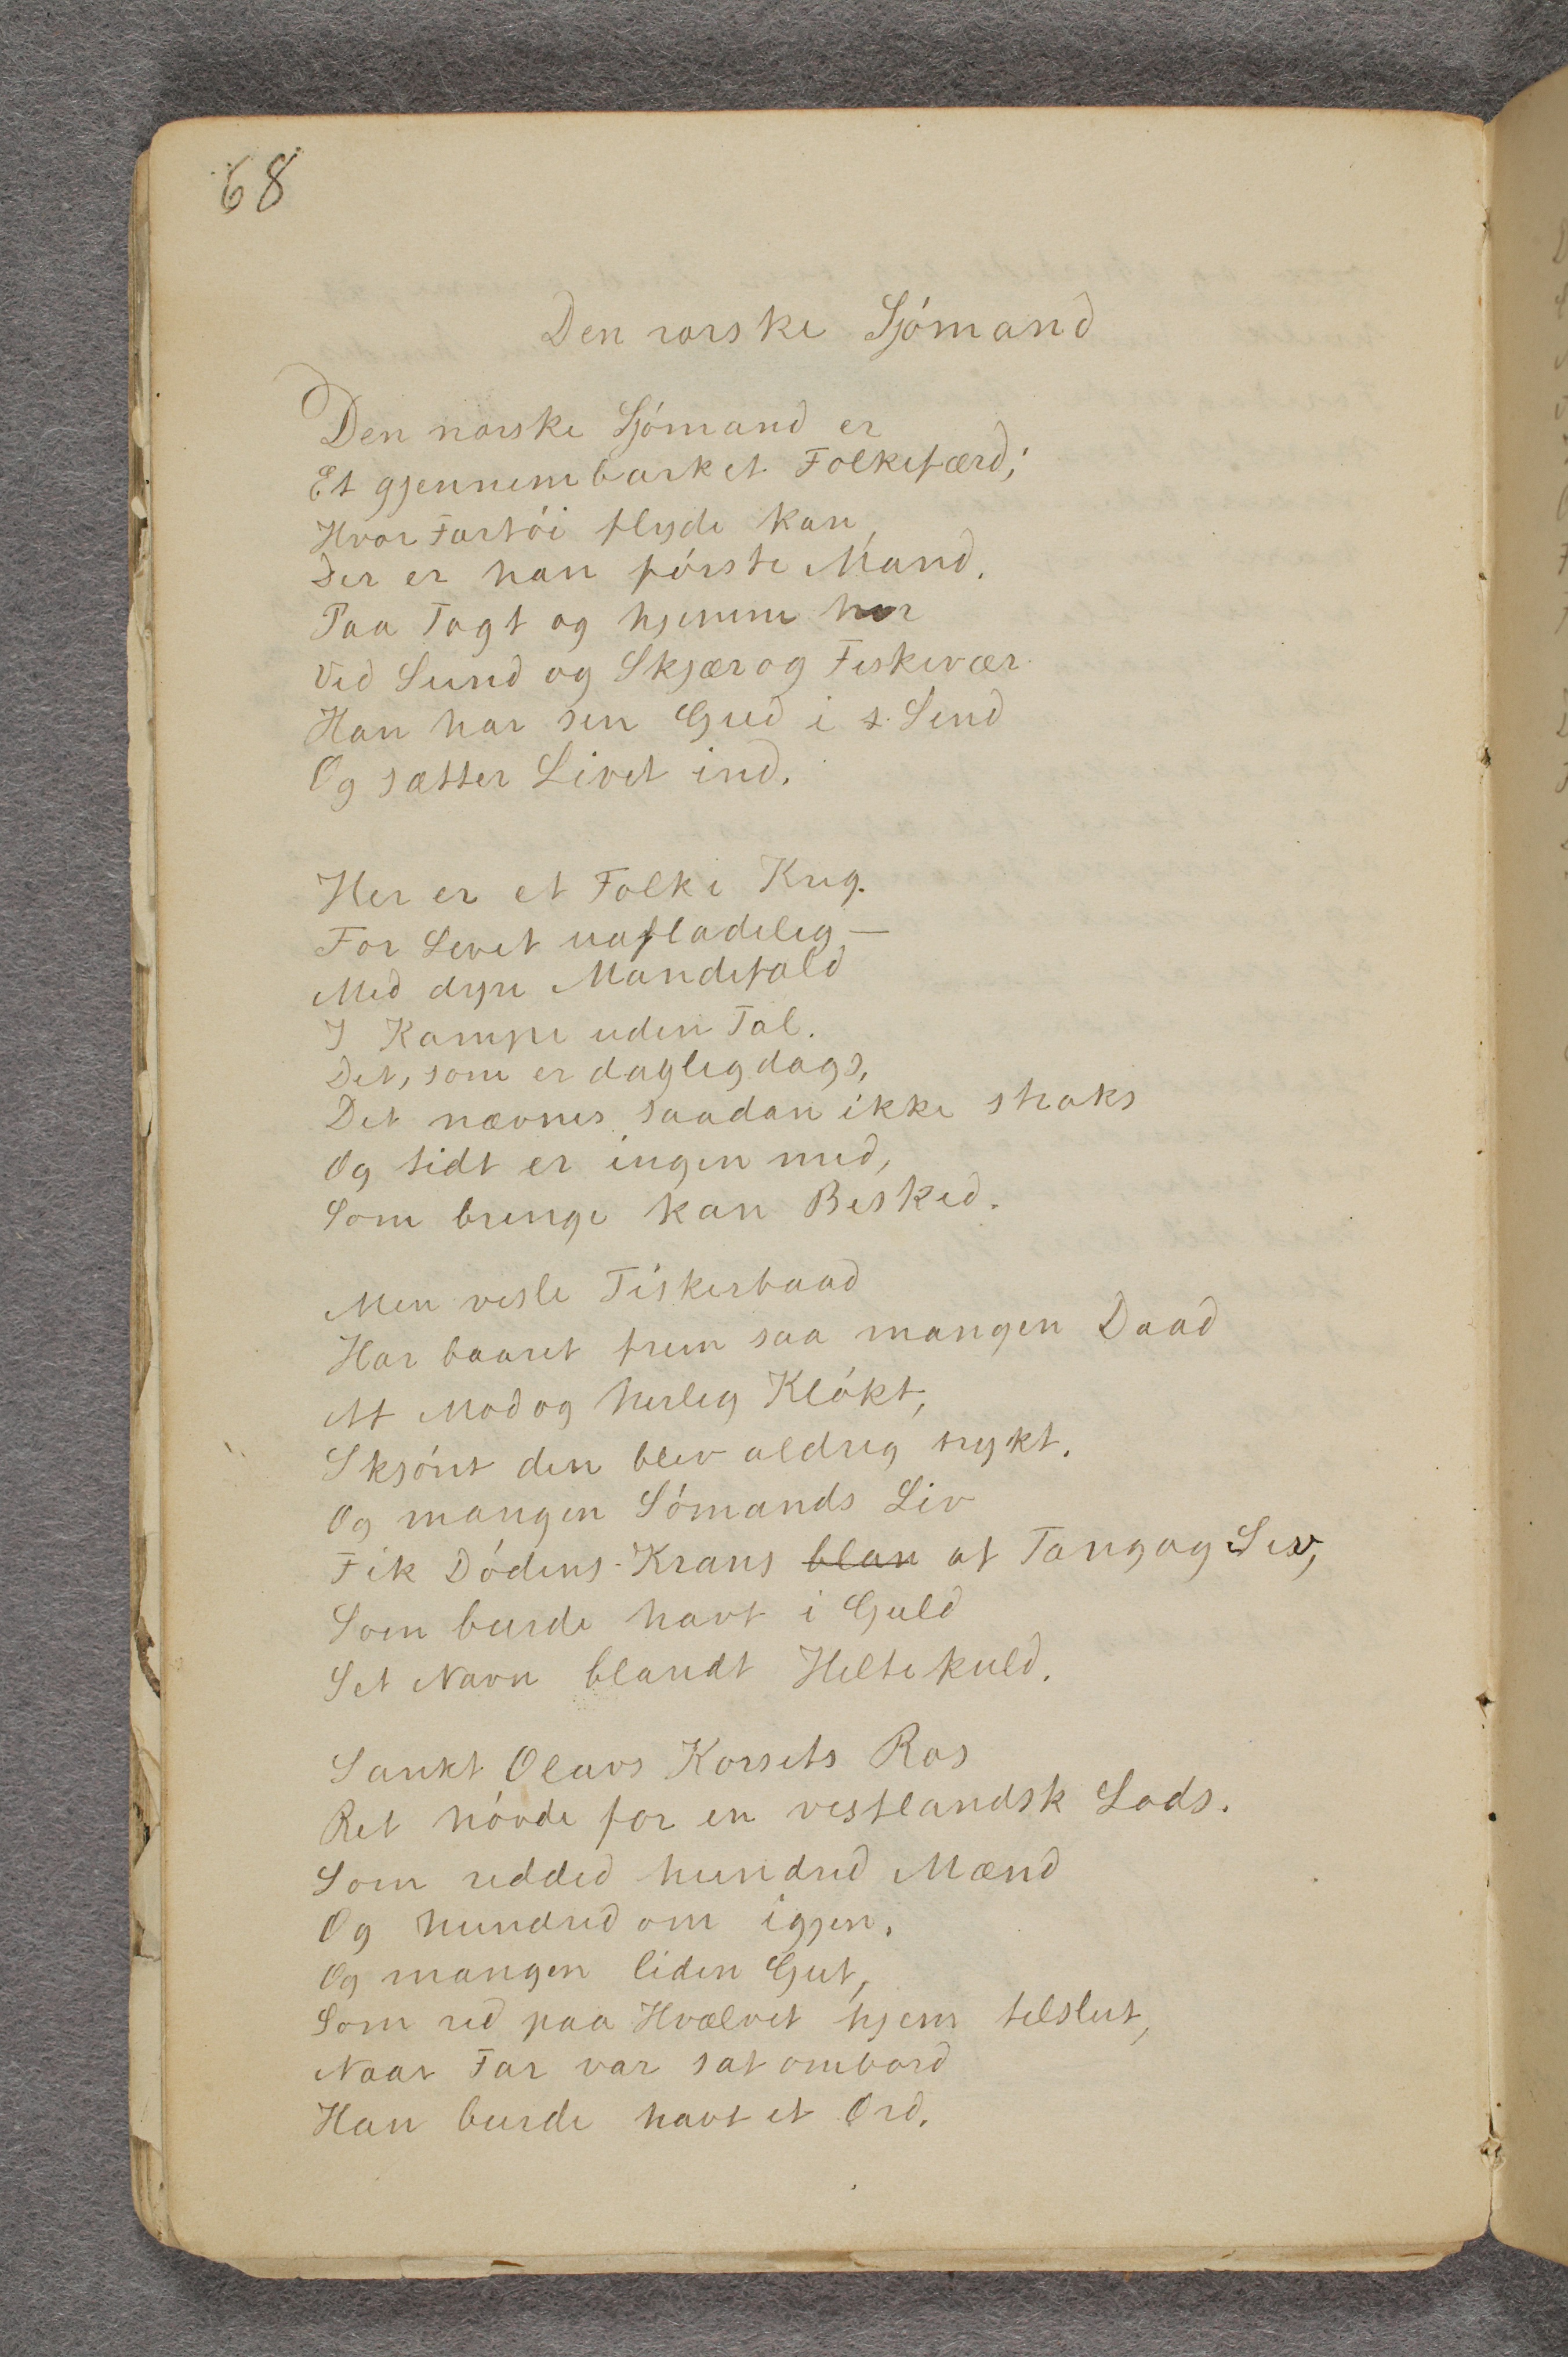 68
Den norske Sjómand
Den norske Sjómand er
Et gjennembarket Folkefærd;
Hvor Fartói flyde kan,
Der er han fórste Mand.
Paa Togt og hjemme her
Ved Sund og Skjær og Fiskevær
Han har sin Gud i s. Sind
Og sætter Livet ind.
Her er et Folk i Krig.
For Livet uafladelig —
Med dyre Mandefald
I Kampe uden Tal.
Det, som er dagligdags,
Det nævnes saadan ikke straks
Og tidt er ingen med,
Som bringe kan Besked.
Men vesle Fiskerbaad
Har baaret frem saa mangen Daad
Af Mod og herlig Klókt,
Skjónt den blev aldrig trykt.
Og mangen Sómands Liv
Fik Dódens-Krans blan af Tang og Siv,
Som burde havt i Guld
Sit Navn blandt Heltekuld.
Sankt Olavs Korsets Ros
Ret hóvde for en vestlandsk Lods.
Som redded hundred Mænd
Og hundred om igjen.
Og mangen liden Gut,
Som red paa Hvælvet hjem tilslut,
Naar Far var sat ombord
Han burde havt et Ord.